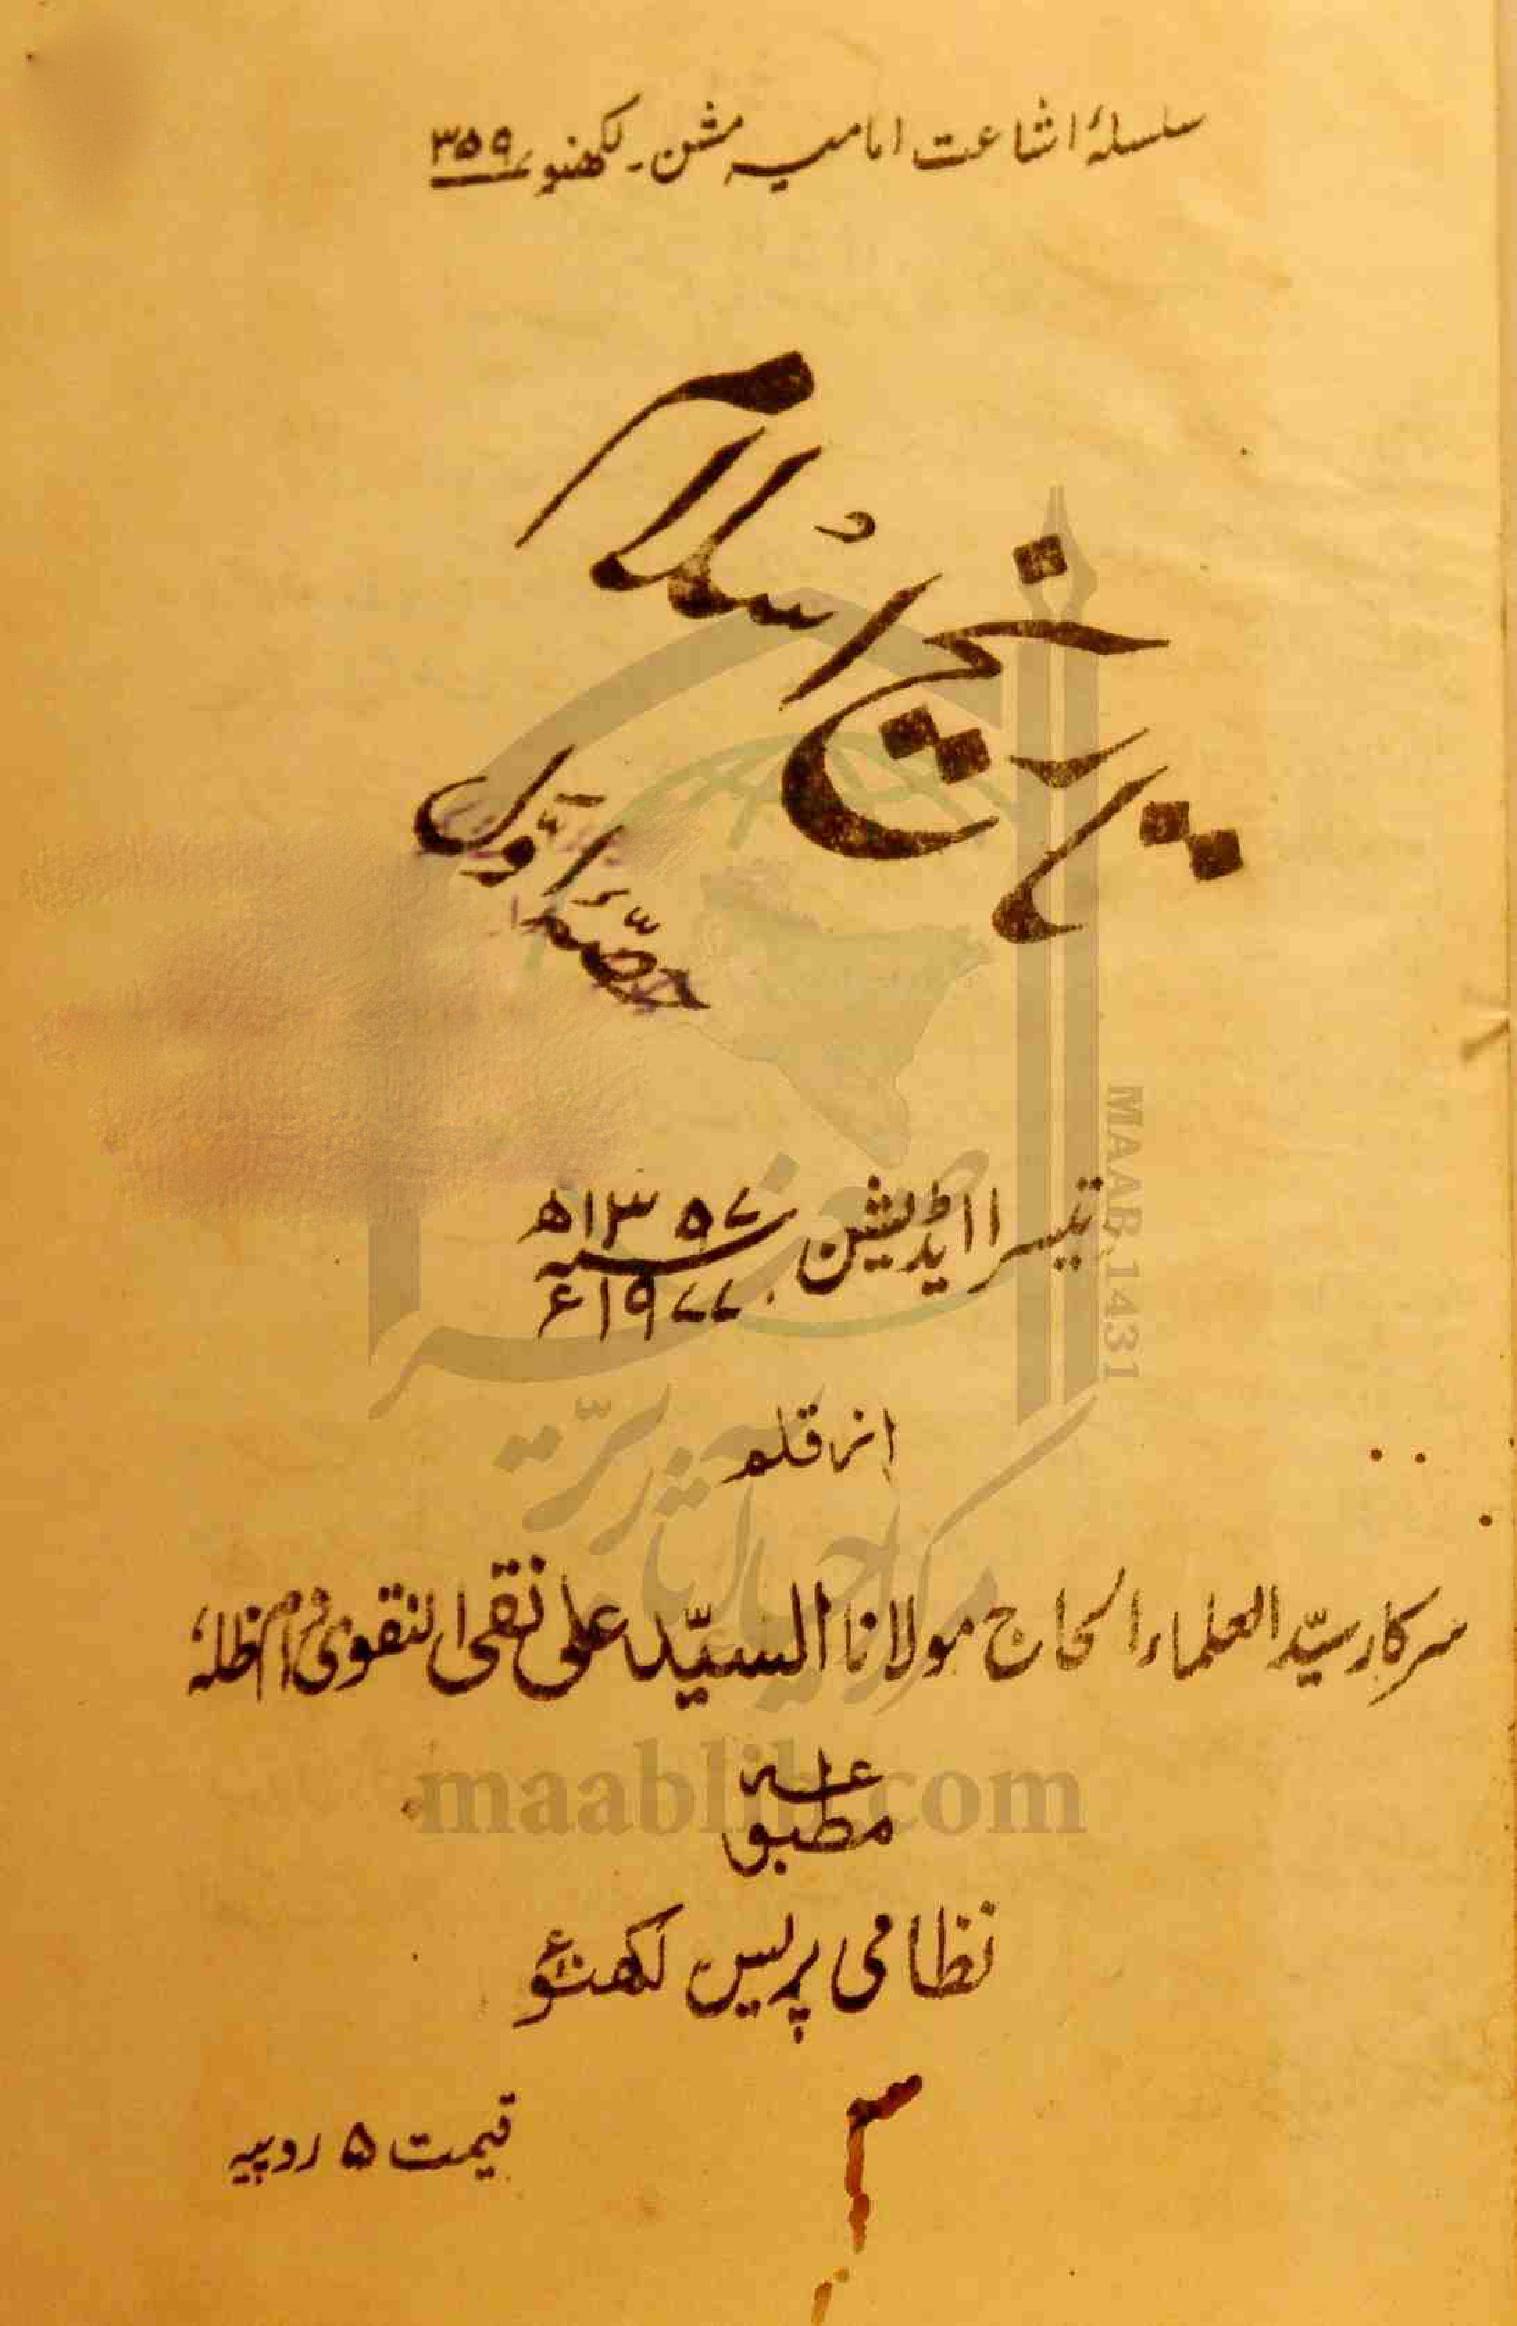 سلسلۂ اشاعت امامیہ مشن۔ لکھنؤ ۳۵۹
تاریخ اسلام
حصّہ اوّل
تیسرا اڈیشن ۱۳۵۷ھ
۱۹۷۷ء
از قلم
سرکار سیّد العلماء الحاج مولانا السیّد علی نقی النقوی دام ظلہٗ
مطبوعہ
نظامی پریس لکھنؤ
قیمت ۵ روپیہ
MAAB.1431
maablib.com